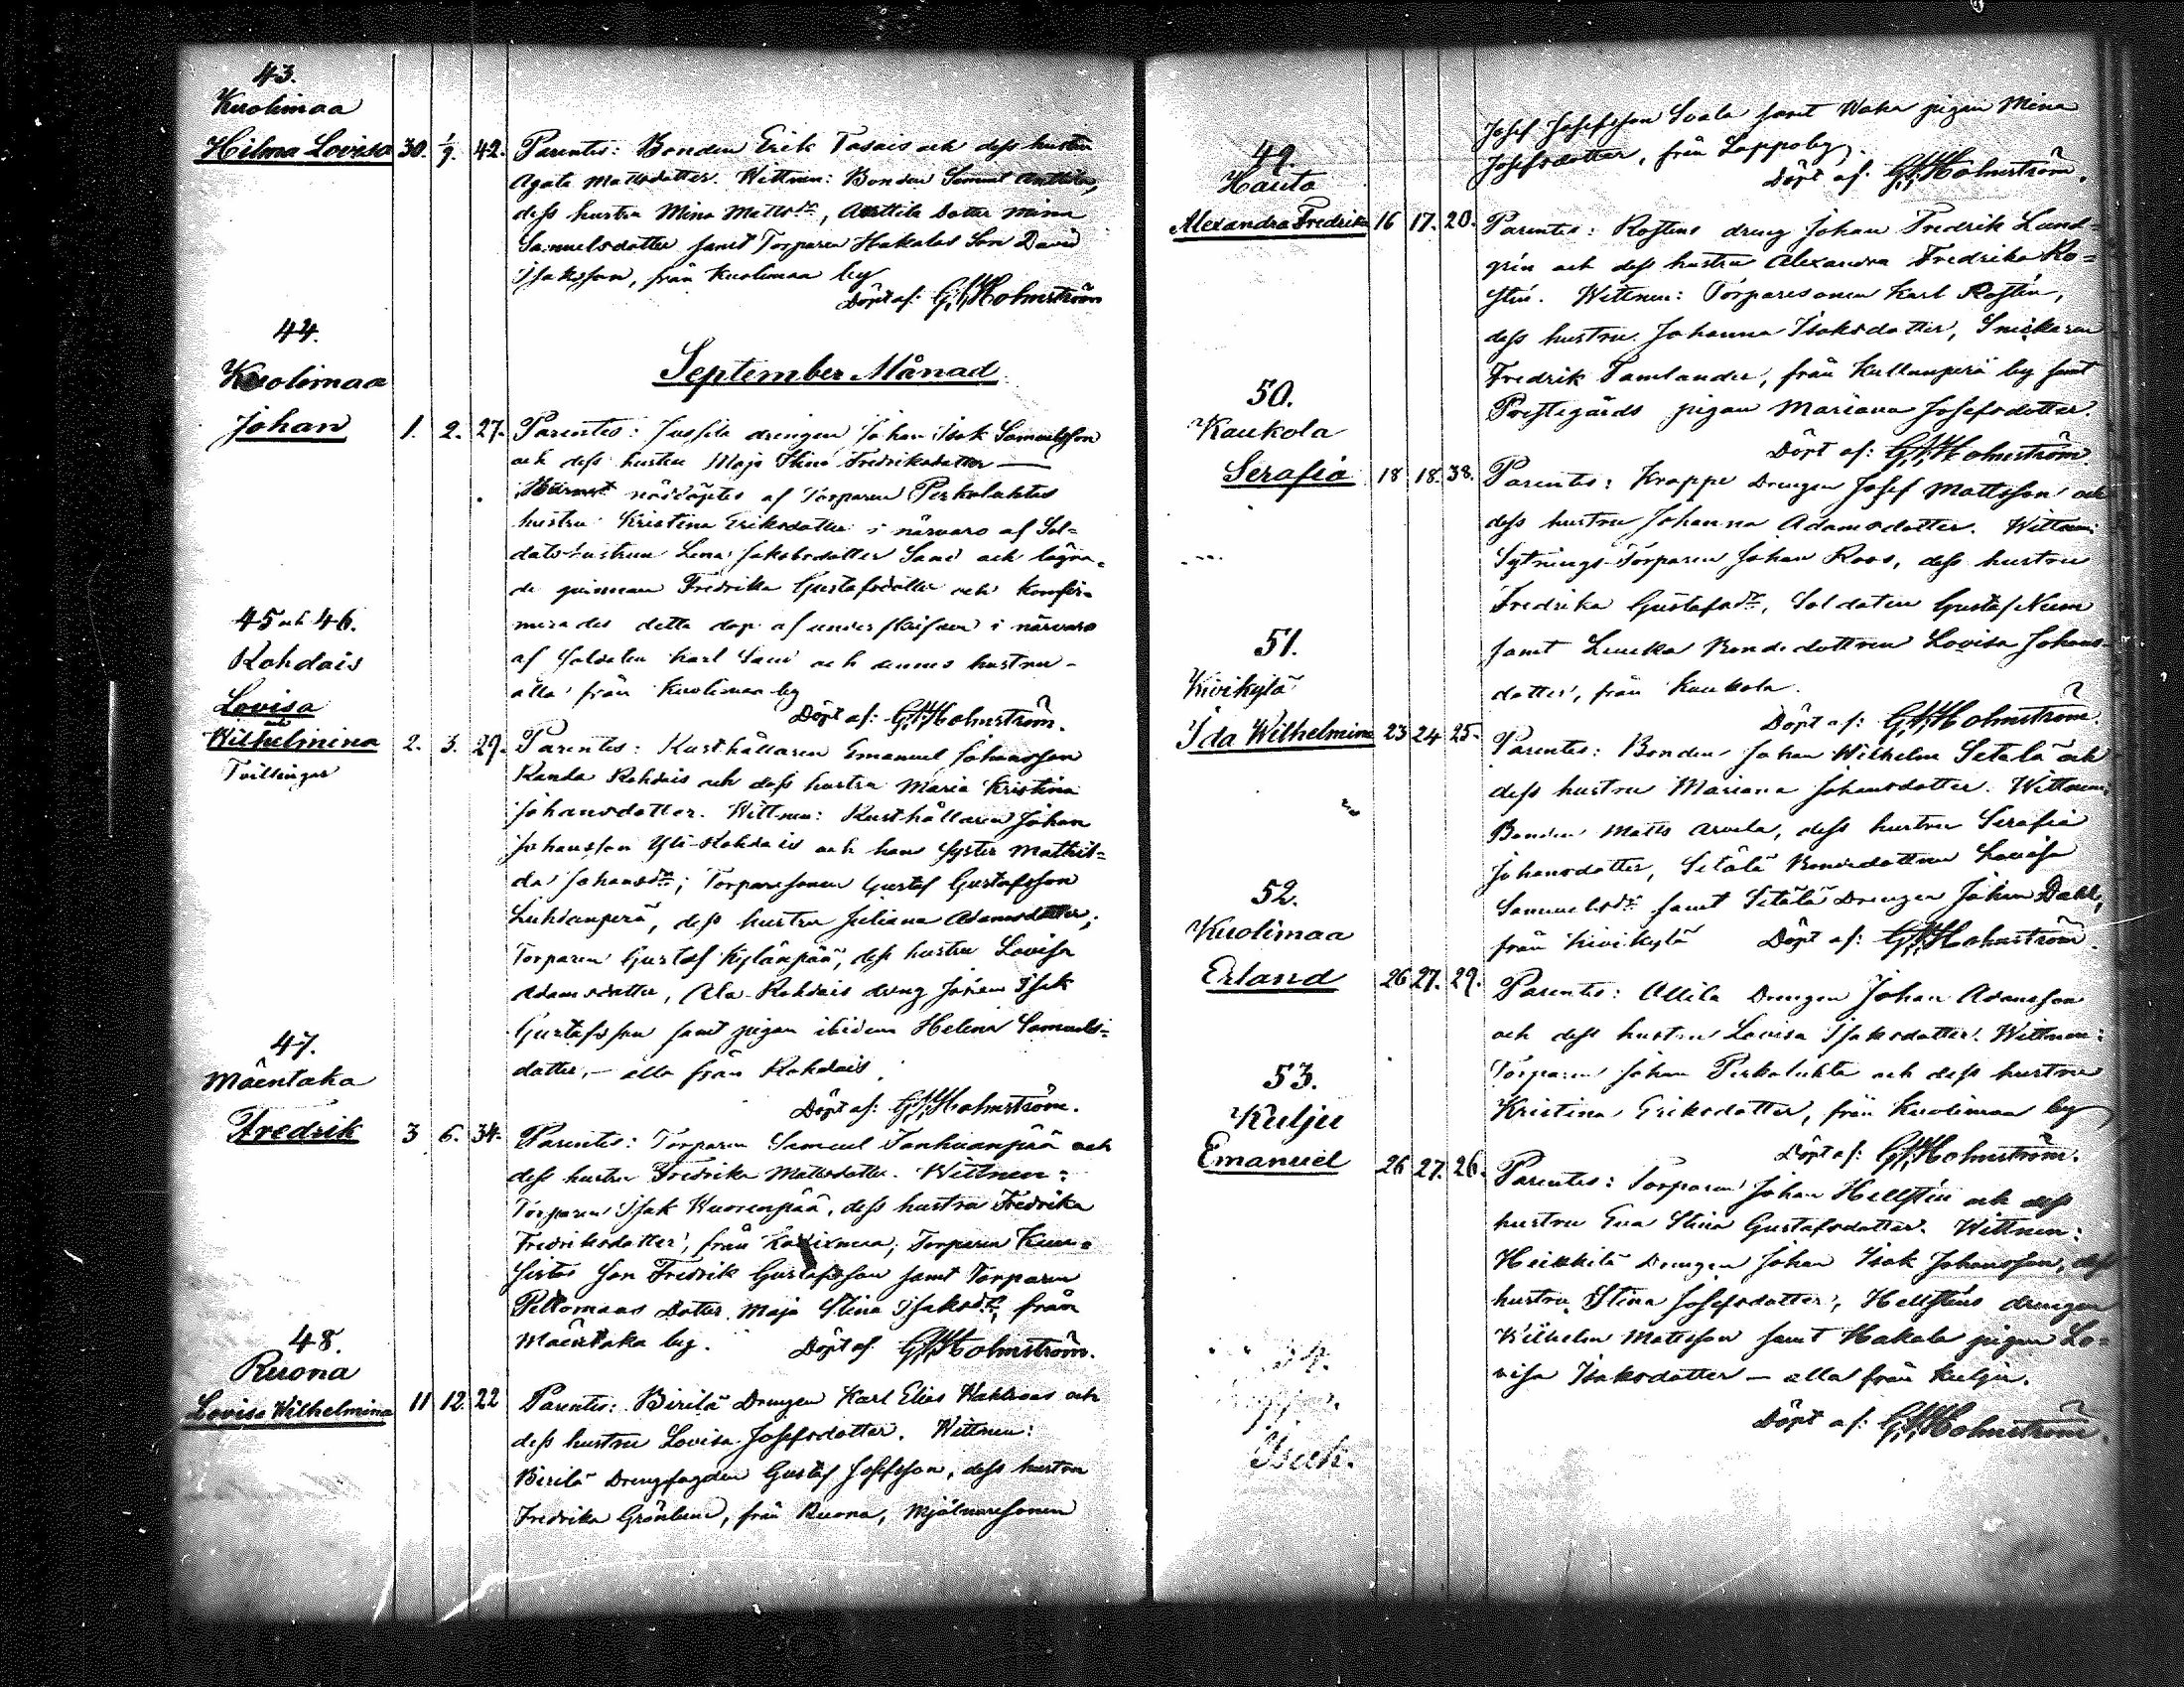 43.
Kuolimaa
Hilma Lovisa 30. 1/9. 42. Parentes: Bonden Erik Tasais och dess hustru
Agata Mattsdotter. Wittnen: Bonden Samuel Anttila,
dess hustru Mina Mattsdr, Anttila dotter Mina
Samuelsdotter samt Torparen Hakalas Son David
Isaksson, från Kuolimaa by
Döpt af: G. Holmström
September Månad
44.
Kuolimaa
Johan 1. 2. 27. Parentes: Jussila drengen Johan Isak Samuelsson
och dess hustru Maja Stina Fredriksdotter —
Barnet nöddöptes af Torparen Perkoluhtas
hustru Kristina Eriksdotter i närvaro af Sol-
datshustrun Lena Jakobsdotter Sand och lägra-
de qvinnan Fredrika Gustafsdotter och konfir-
merades detta dop af underskrifven i närvaro
af Soldaten Karl Sand och annes hustru -
alla från Kuolimaa by
Döpt af: G. Holmström.
45 och 46.
Kohdais
Lovisa
och
Wilhelmina 2. 3. 29. Parentes: Rusthållaren Emanuel Johansson
Tvillingar
Kanda Kohdais och dess hustru Maria Kristina
Johansdotter. Wittnen: Rusthållaren Johan
Johansson Yli-Kohdais och hans Syster Mathil-
da Johansdr; Torparesonen Gustaf Gustafsson
Luhdanperä, dess hustru Juliana Adamsdotter;
Torparen Gustaf Kylänpää, dess hustru Lovisa
Adamsdotter, Ala-Kohdais dreng Johan Isak
Gustafsson samt pigan ibidem Helena Samuels-
dotter, — alla från Kohdais.
Döpt af: G. Holmström.
47.
Mäentaka
Fredrik 3 6. 34. Parentes: Torparen Samuel Tanhuanpää och
dess hustru Fredrika Mattsdotter. Wittnen:
Torparen Isak Wuorenpää, dess hustru Fredrika
Fredriksdotter, från; Torparen
Son Fredrik Gustafsson samt Torparen
Peltomaas Dotter Maja Stina Isaksdr, från
Mäentaka by. Döpt af G. Holmström.
48.
Ruona
Lovisa Wilhelmina 11 12. 22 Parentes: Birilä Drengen Karl Elias Wahlroos och
dess hustru Lovisa Josefsdotter. Wittnen:
Birilä Drengfogden Gustaf Josefsson, dess hustru
Fredrika Grönlund, från Ruona, Mjölnaresonen
Josef Josefsson Suala samt Waha pigan Mina
Josefsdotter, från Lappo by.
Döpt af: G. Holmström.
49.
Hauto
Alexandra Fredrika 16 17. 20. Parentes: Rostens dreng Johan Fredrik Lund-
grén och dess hustru Alexandra Fredrika Ro-
stén. Wittnen: Torparesonen Karl Rostén,
dess hustru Johanna Isaksdotter, Snickaren
Fredrik Tamlander, från Kullanperä by samt
Prestegårds pigan Mariana Josefsdotter.
Döpt af: G. Holmström.
50.
Kaukola
Serafia 18 18. 38. Parentes: Krappe Drengen Josef Mattsson och
dess hustru Johanna Adamsdotter. Wittnen:
Sytnings-Torparen Johan Roos, dess hustru
Fredrika Gustafsdr, Soldaten Gustaf Num
samt Bondedottren Lovisa Johans-
dotter, från Kaukola.
Döpt af: G. Holmström.
51.
Kivikylä
Ida Wilhelmina 23 24 25. Parentes: Bonden Johan Wilhelm Setälä och
dess hustru Mariana Johansdotter. Wittnen:
Bonden Matts Arvela, dess hustru Serafia
Johansdotter, Setälä Bondedottren Lovisa
Samuelsdr samt Setälä Drengen Johan Dahl,
från Kivikylä Döpt af: G. Holmström.
52.
Kuolimaa
Erland 26 27. 29. Parentes: Attila Drengen Johan Adamsson
och dess hustru Lovisa Isaksdotter. Wittnen:
Torparen Johan Perkoluhta och dess hustru
Kristina Eriksdotter, från Kuolimaa by
Döpt af: G. Holmström.
53.
Kulju
Emanuel 26 27. 26. Parentes: Torparen Johan Hellstén och dess
hustru Eva Stina Gustafsdotter. Wittnen:
Heikkilä Drengen Johan Isak Johansson, dess
hustru Stina Josefsdotter, Hellsténs drengen
Wilhelm Mattsson samt Hakala pigan Lo-
visa Isaksdotter — alla från Kulju.
Döpt af: G. Holmström.